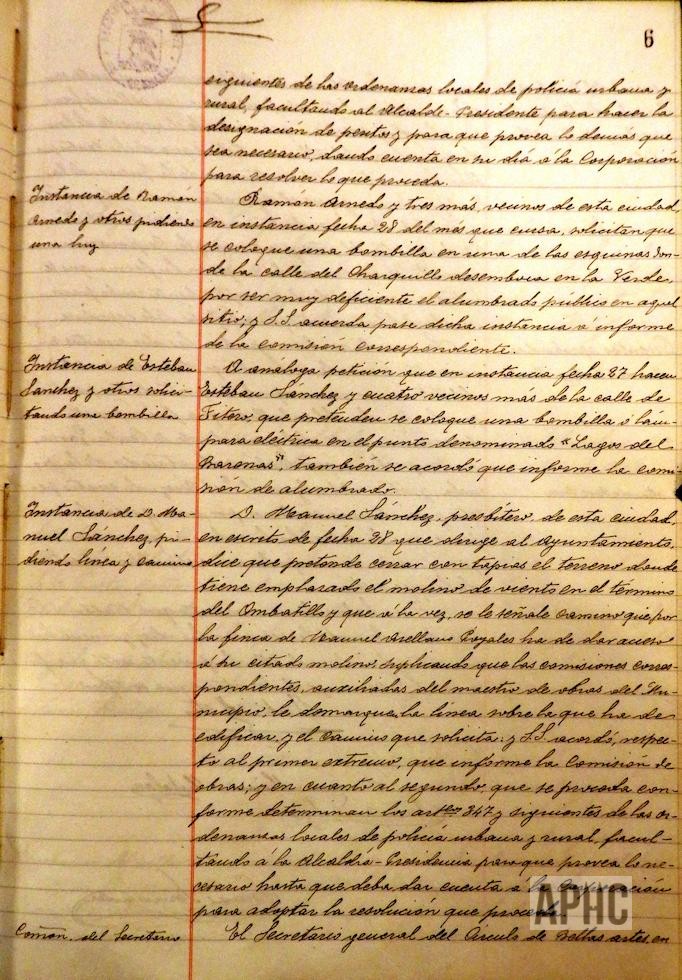 6
siguientes de las ordenanzas locales de policía urbana y
rural, facultando al Alcalde-Presidente para hacer la
designación de peritos y para que provea lo demás que
sea necesario, dando cuenta en su día á la Corporación
para resolver lo que proceda.
Instancia de Ramón
Arnedo y otros pidiendo
una luz
Ramon Arnedo y tres más, vecinos de esta ciudad,
en instancia fecha 28 del mes que cursa, solicitan que
se coloque una bombilla en una de las esquinas don-
de la calle del Charquillo desemboca en la Verde,
por ser muy deficiente el alumbrado público en aquel
sitio; y S.S. acuerda pase dicha instancia á informe
de la comisión correspondiente.
Instancia de Esteban
Sanchez y otros solici-
tando una bombilla
A análoga petición que en instancia fecha 27 hacen
Esteban Sánchez y cuatro vecinos más de la calle de
Fitero, que pretenden se coloque una bombilla ó lám-
para eléctrica en el punto denominado "Lagos del
Baronas", también se acordó que informe la comi-
sión de alumbrado.
Instancia de D. Ma-
nuel Sánchez, pi-
diendo línea y camino
D. Manuel Sánchez, presbítero, de esta ciudad,
en escrito de fecha 28 que dirige al Ayuntamiento,
dice que pretende cerrar con tapias el terreno donde
tiene emplazado el molino de viento en el término
del Ombatillo y que á la vez, se le señale camino que por
la finca de Manuel Arellano Royales ha de dar acceso
á su citado molino, suplicando que las comisiones corres-
pondientes, auxiliadas del maestro de obras del Mu-
nicipio, le demarque la línea sobre la que ha de
edificar, y el camino que solicita; y S.S. acordó, respec-
to al primer extremo, que informe la Comisión de
obras; y en cuanto al segundo, que se proceda con-
forme determinan los artos 347 y siguientes de las or-
denanzas locales de policía urbana y rural, facul-
tando á la Alcaldía-Presidencia para que provea lo ne-
cesario hasta que deba dar cuenta á la Corporación
para adoptar la resolución que proceda.
Comon. del Secretario
El Secretario general del Círculo de Bellas artes, en
APHC